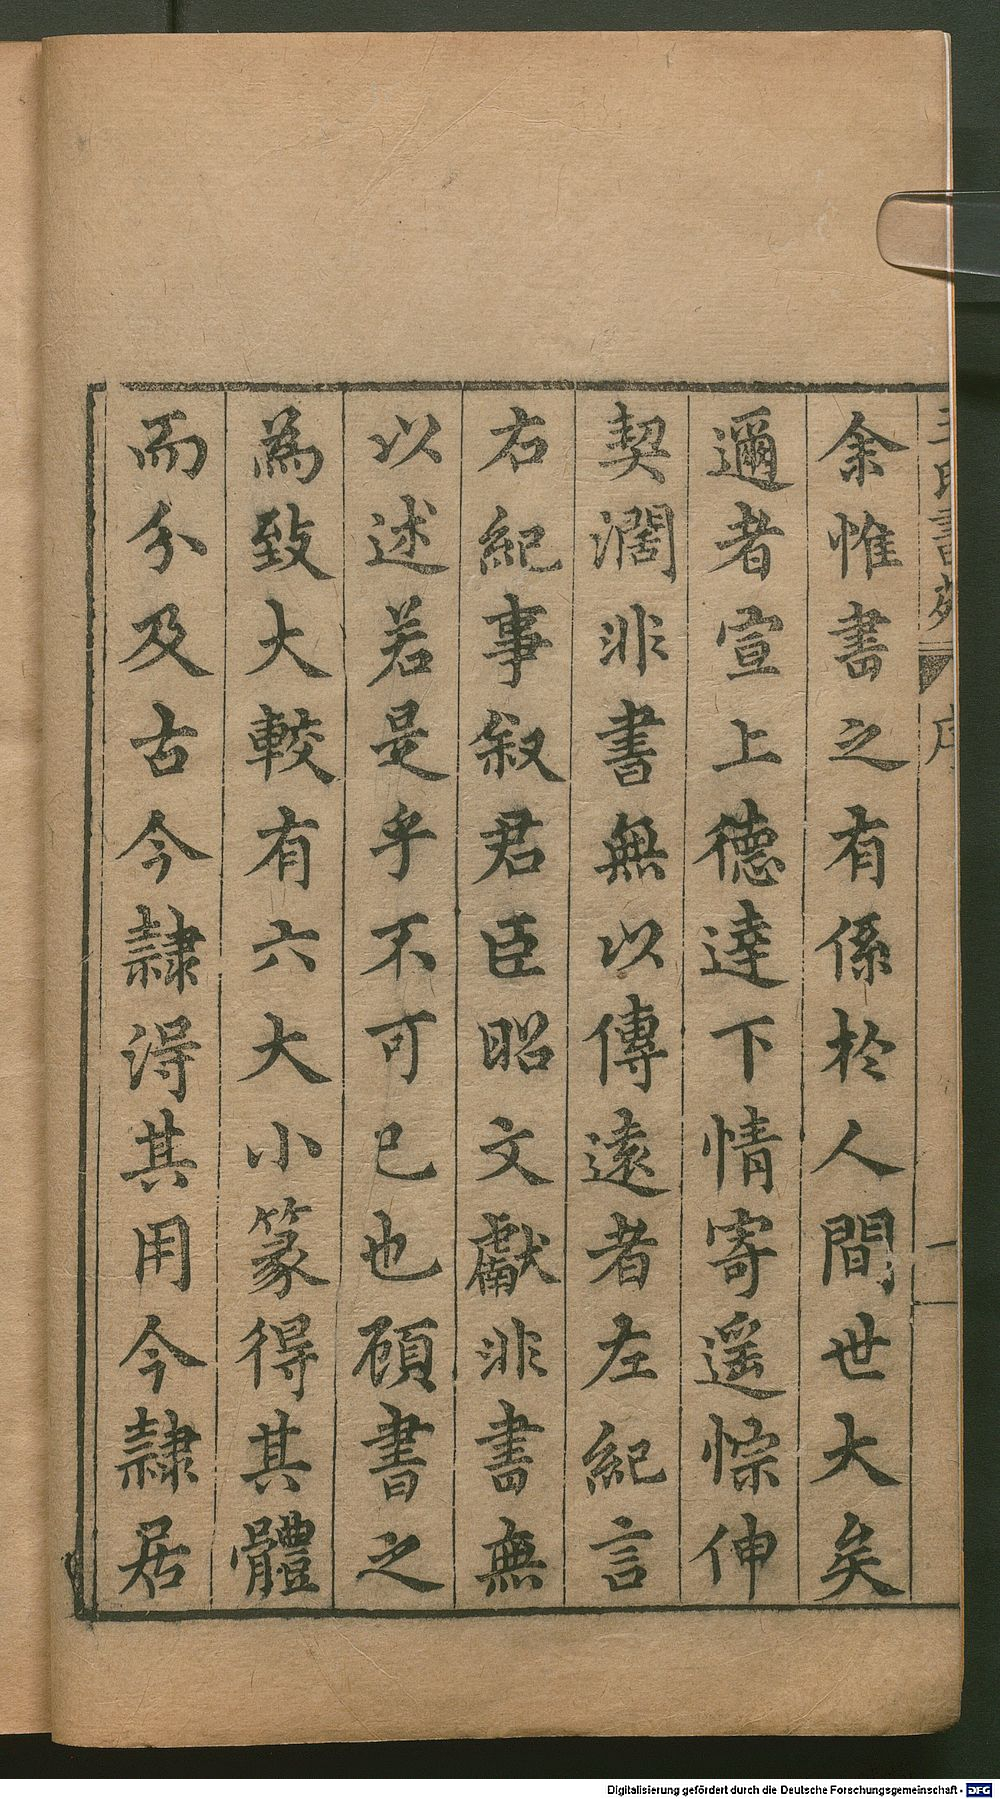 余惟書之有係於人間世大矣
邇者宣上德達下情寄遥悰伸
契濶非書無以傳遠者左紀言
右紀事叙君臣昭文獻非書無
以述若是乎不可已也顧書之
為致大較有六大小篆得其體
而分及古今隷淂其用今隷居
Digitalisierung gefördert durch die Deutsche Forschungsgemeinschaft - DFG